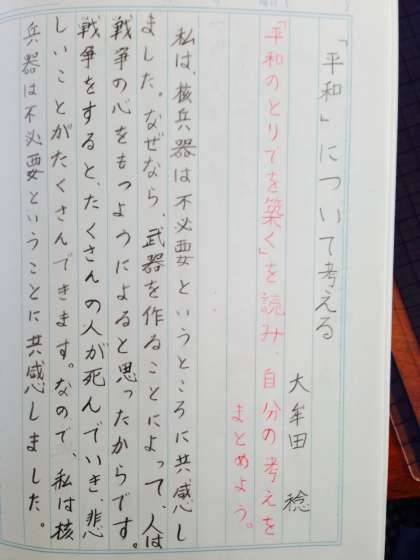 「平和」について考える
大牟田 稔
「平和のとりでを築く」を読み、自分の考えを
まとめよう。
私は、核兵器は不必要というところに共感し
ました。なぜなら、武器を作ることによって、人は
戦争の心をもつようによると思ったからです。
戦争をすると、たくさんの人が死んでいき、悲
しいことがたくさんできます。なので、私は核
兵器は不必要ということに共感しました。